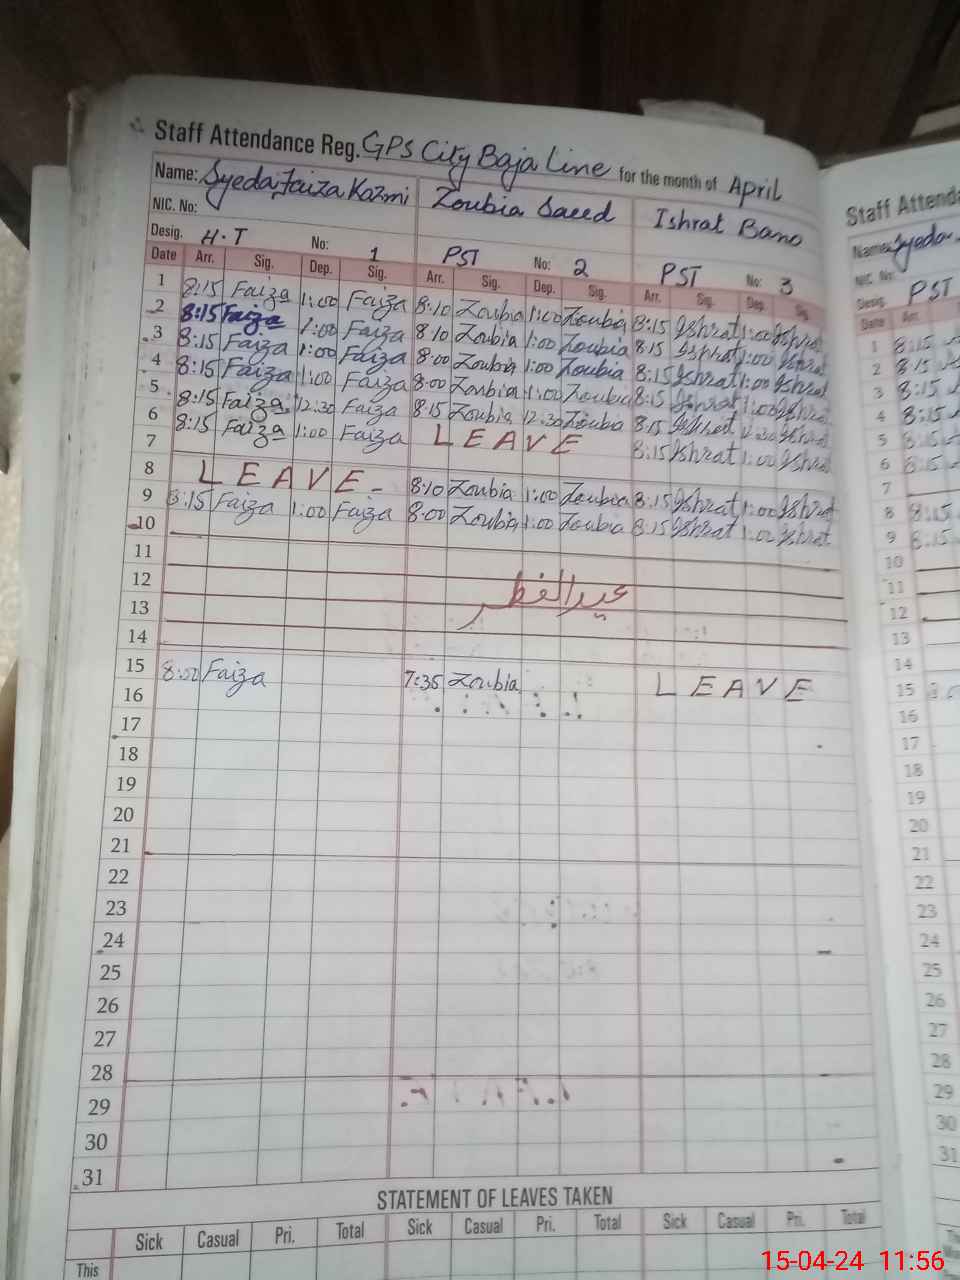 Staff Attendance Reg. GPS City Baja Line for the month of April
Name: Syeda Faiza Kazmi Zoubia Saeed Ishrat Bano
NIC. No:
Desig. H.T No: 1 PST No: 2 PST No: 3
Date Arr. Sig. Dep. Sig. Arr. Sig. Dep. Sig. Arr. Sig. Dep. Sig.
1 8:15 Faiza 1:00 Faiza 8:10 Zoubia 1:00 Zoubia 8:15 Ishrat 1:00 Ishrat
2 8:15 Faiza 1:00 Faiza 8:10 Zoubia 1:00 Zoubia 8:15 Ishrat 1:00 Ishrat
3 8:15 Faiza 1:00 Faiza 8:00 Zoubia 1:00 Zoubia 8:15 Ishrat 1:00 Ishrat
4 8:15 Faiza 1:00 Faiza 8:00 Zoubia 1:00 Zoubia 8:15 Ishrat 1:00 Ishrat
5 8:15 Faiza 12:30 Faiza 8:15 Zoubia 12:30 Zoubia 8:15 Ishrat 12:30 Ishrat
6 8:15 Faiza 1:00 Faiza LEAVE 8:15 Ishrat 1:00 Ishrat
7
8 LEAVE 8:10 Zoubia 1:00 Zoubia 8:15 Ishrat 1:00 Ishrat
9 8:15 Faiza 1:00 Faiza 8:00 Zoubia 1:00 Zoubia 8:15 Ishrat 1:00 Ishrat
10
11
12 عیدالفطر
13
14
15 8:00 Faiza 7:35 Zoubia LEAVE
16
17
18
19
20
21
22
23
24
25
26
27
28
29
30
31
STATEMENT OF LEAVES TAKEN
Sick Casual Pri. Total Sick Casual Pri. Total Sick Casual Pri. Total
This
Staff
Name: Syeda
NIC. No:
Desig. PST
Date Arr.
1 8:15
2 8:15
3 8:15
4 8:15
5 8:15
6 8:15
7
8 8:15
9 8:15
10
11
12
13
14
15
16
17
18
19
20
21
22
23
24
25
26
27
28
29
30
31
15-04-24 11:56